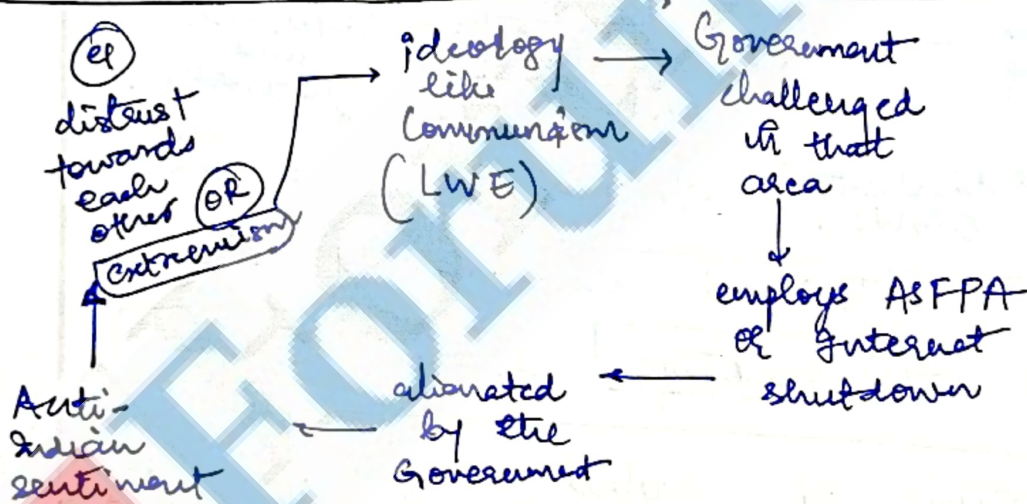 eg
distrust
towards
each
other
OR
extremism
ideology
like
Communism
(LWE)
Government
challenged
in that
area
employs ASFPA
or Internet
shutdown
alianated
by the
Government
Anti-
Indian
sentiment
Forum